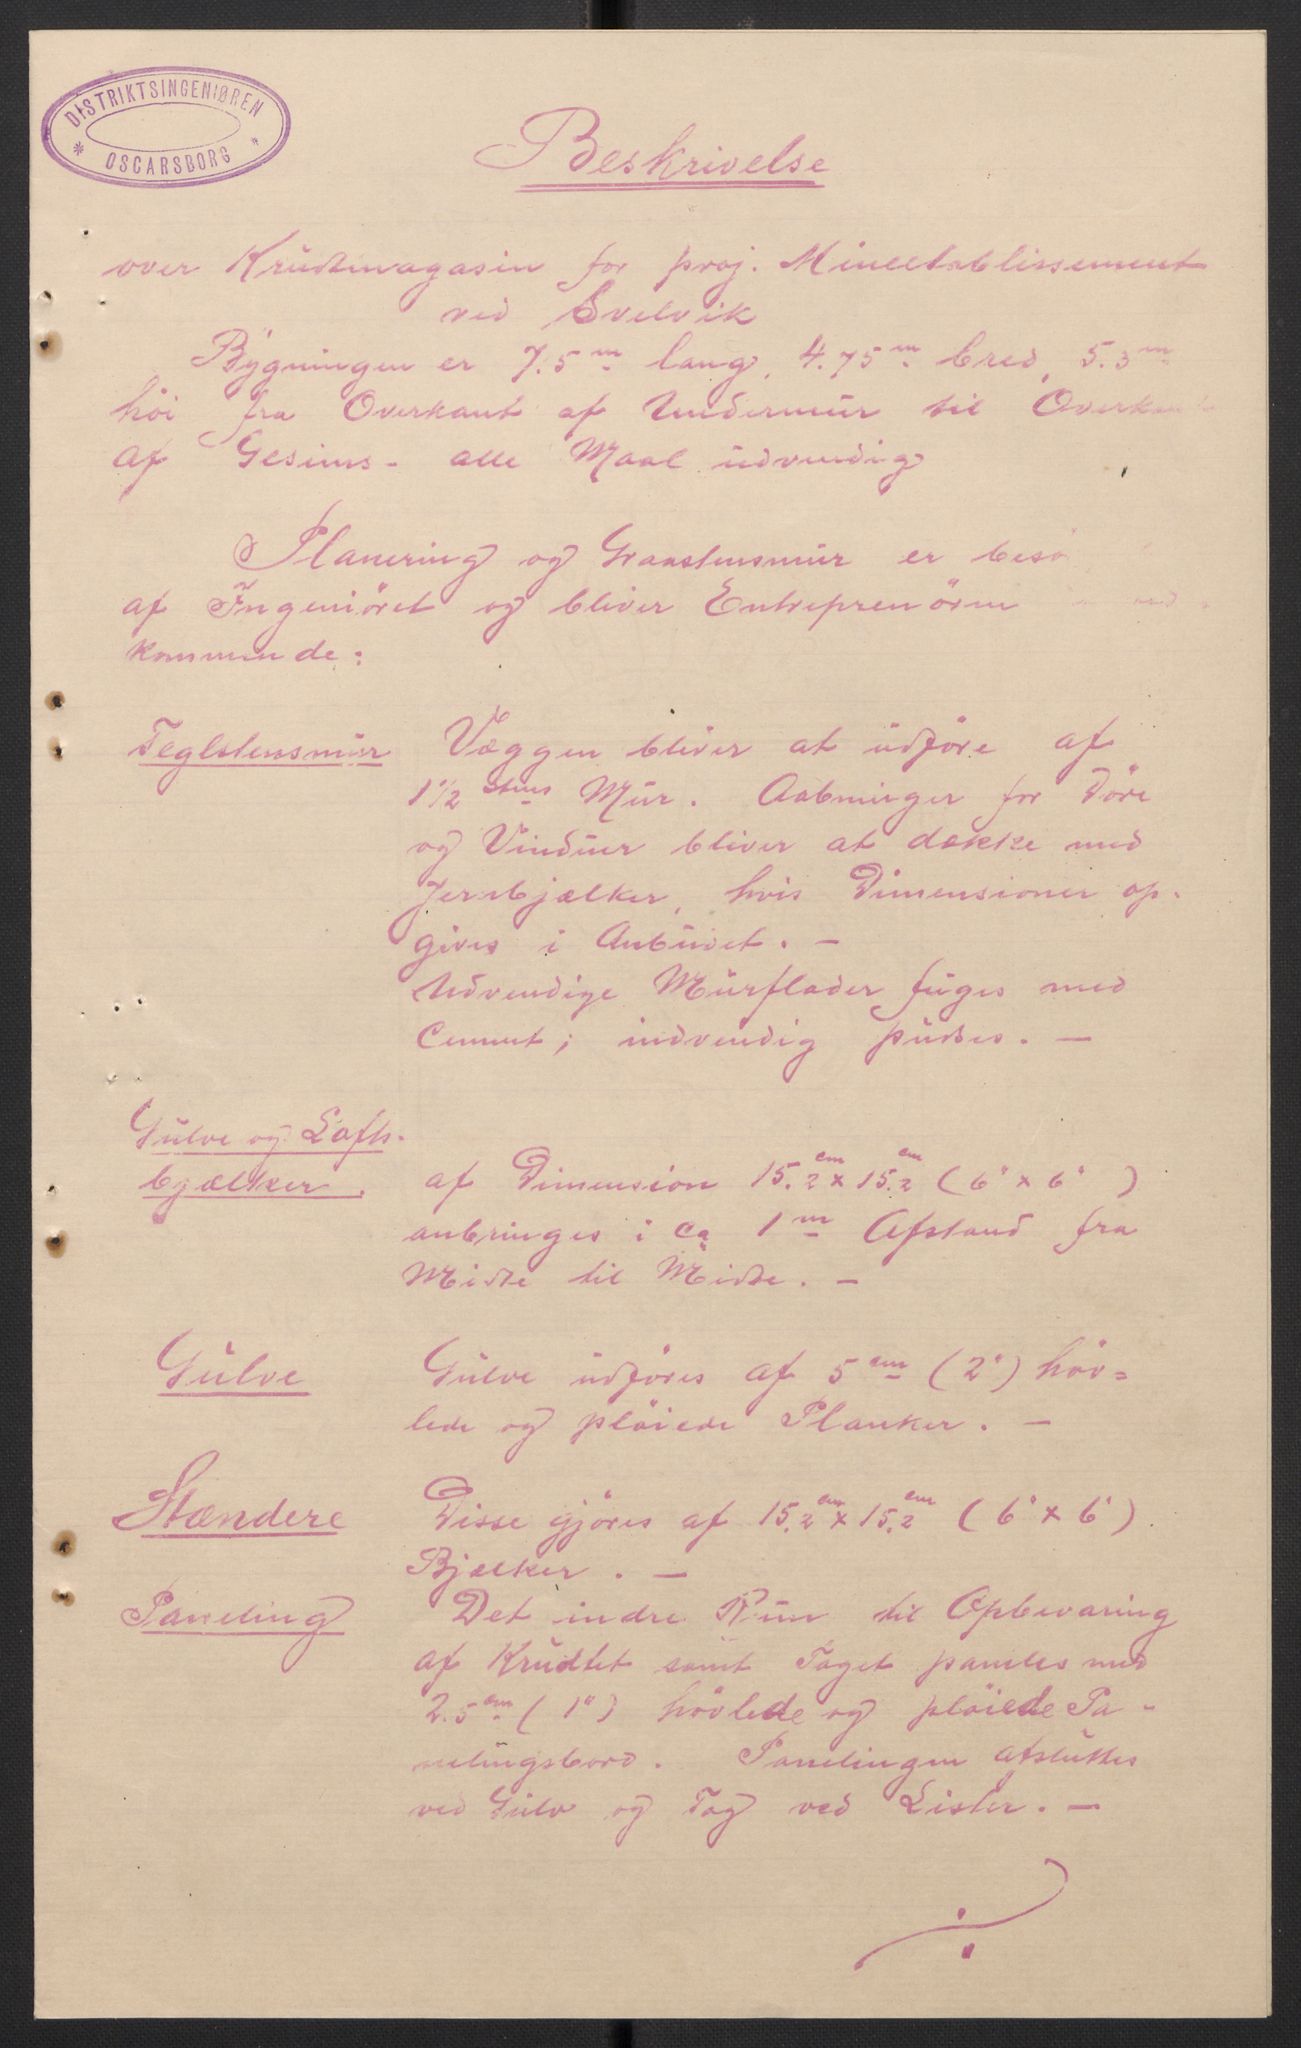 DISTRIKTSINGENIØREN
* OSCARSBORG *
Beskrivelse
over Krudtmagasin for proj. Mineetablissement
ved Svelvik
Bygningen er 7.5 m lang, 4.75 m bred, 5.3 m
höi fra Overkant af Undermur til Overkant
af Gesims - alle Maal udvendig
Planering og Graastensmur er
af Ingeniöret og bliver Entreprenören
kommende:
Teglstensmur
Væggen bliver at udföre af
1 1/2 Stens Mur. Aabninger for Döre
og Vinduer bliver at dække med
Jernbjælker, hvis Dimensioner op-
gives i Anbudet. -
Udvendige Murflader fuges med
Cement; indvendig pudses. -
Gulve og Lofts-
bjælker.
af Dimension 15.2 cm x 15.2 cm (6" x 6")
anbringes i ca 1 m Afstand fra
Midte til Midte. -
Gulve
Gulve udföres af 5 cm (2") höv=
lede og plöiede Planker. -
Stændere
Disse gjöres af 15.2 cm x 15.2 cm (6" x 6")
Bjælker. -
Paneling
Det indre Rum til Opbevaring
af Krudtet samt Taget paneles med
2.5 cm (1") hövlede og plöiede Pa-
nelingsbord. Panelingen afsluttes
ved Gulv og Tag ved Lister. -